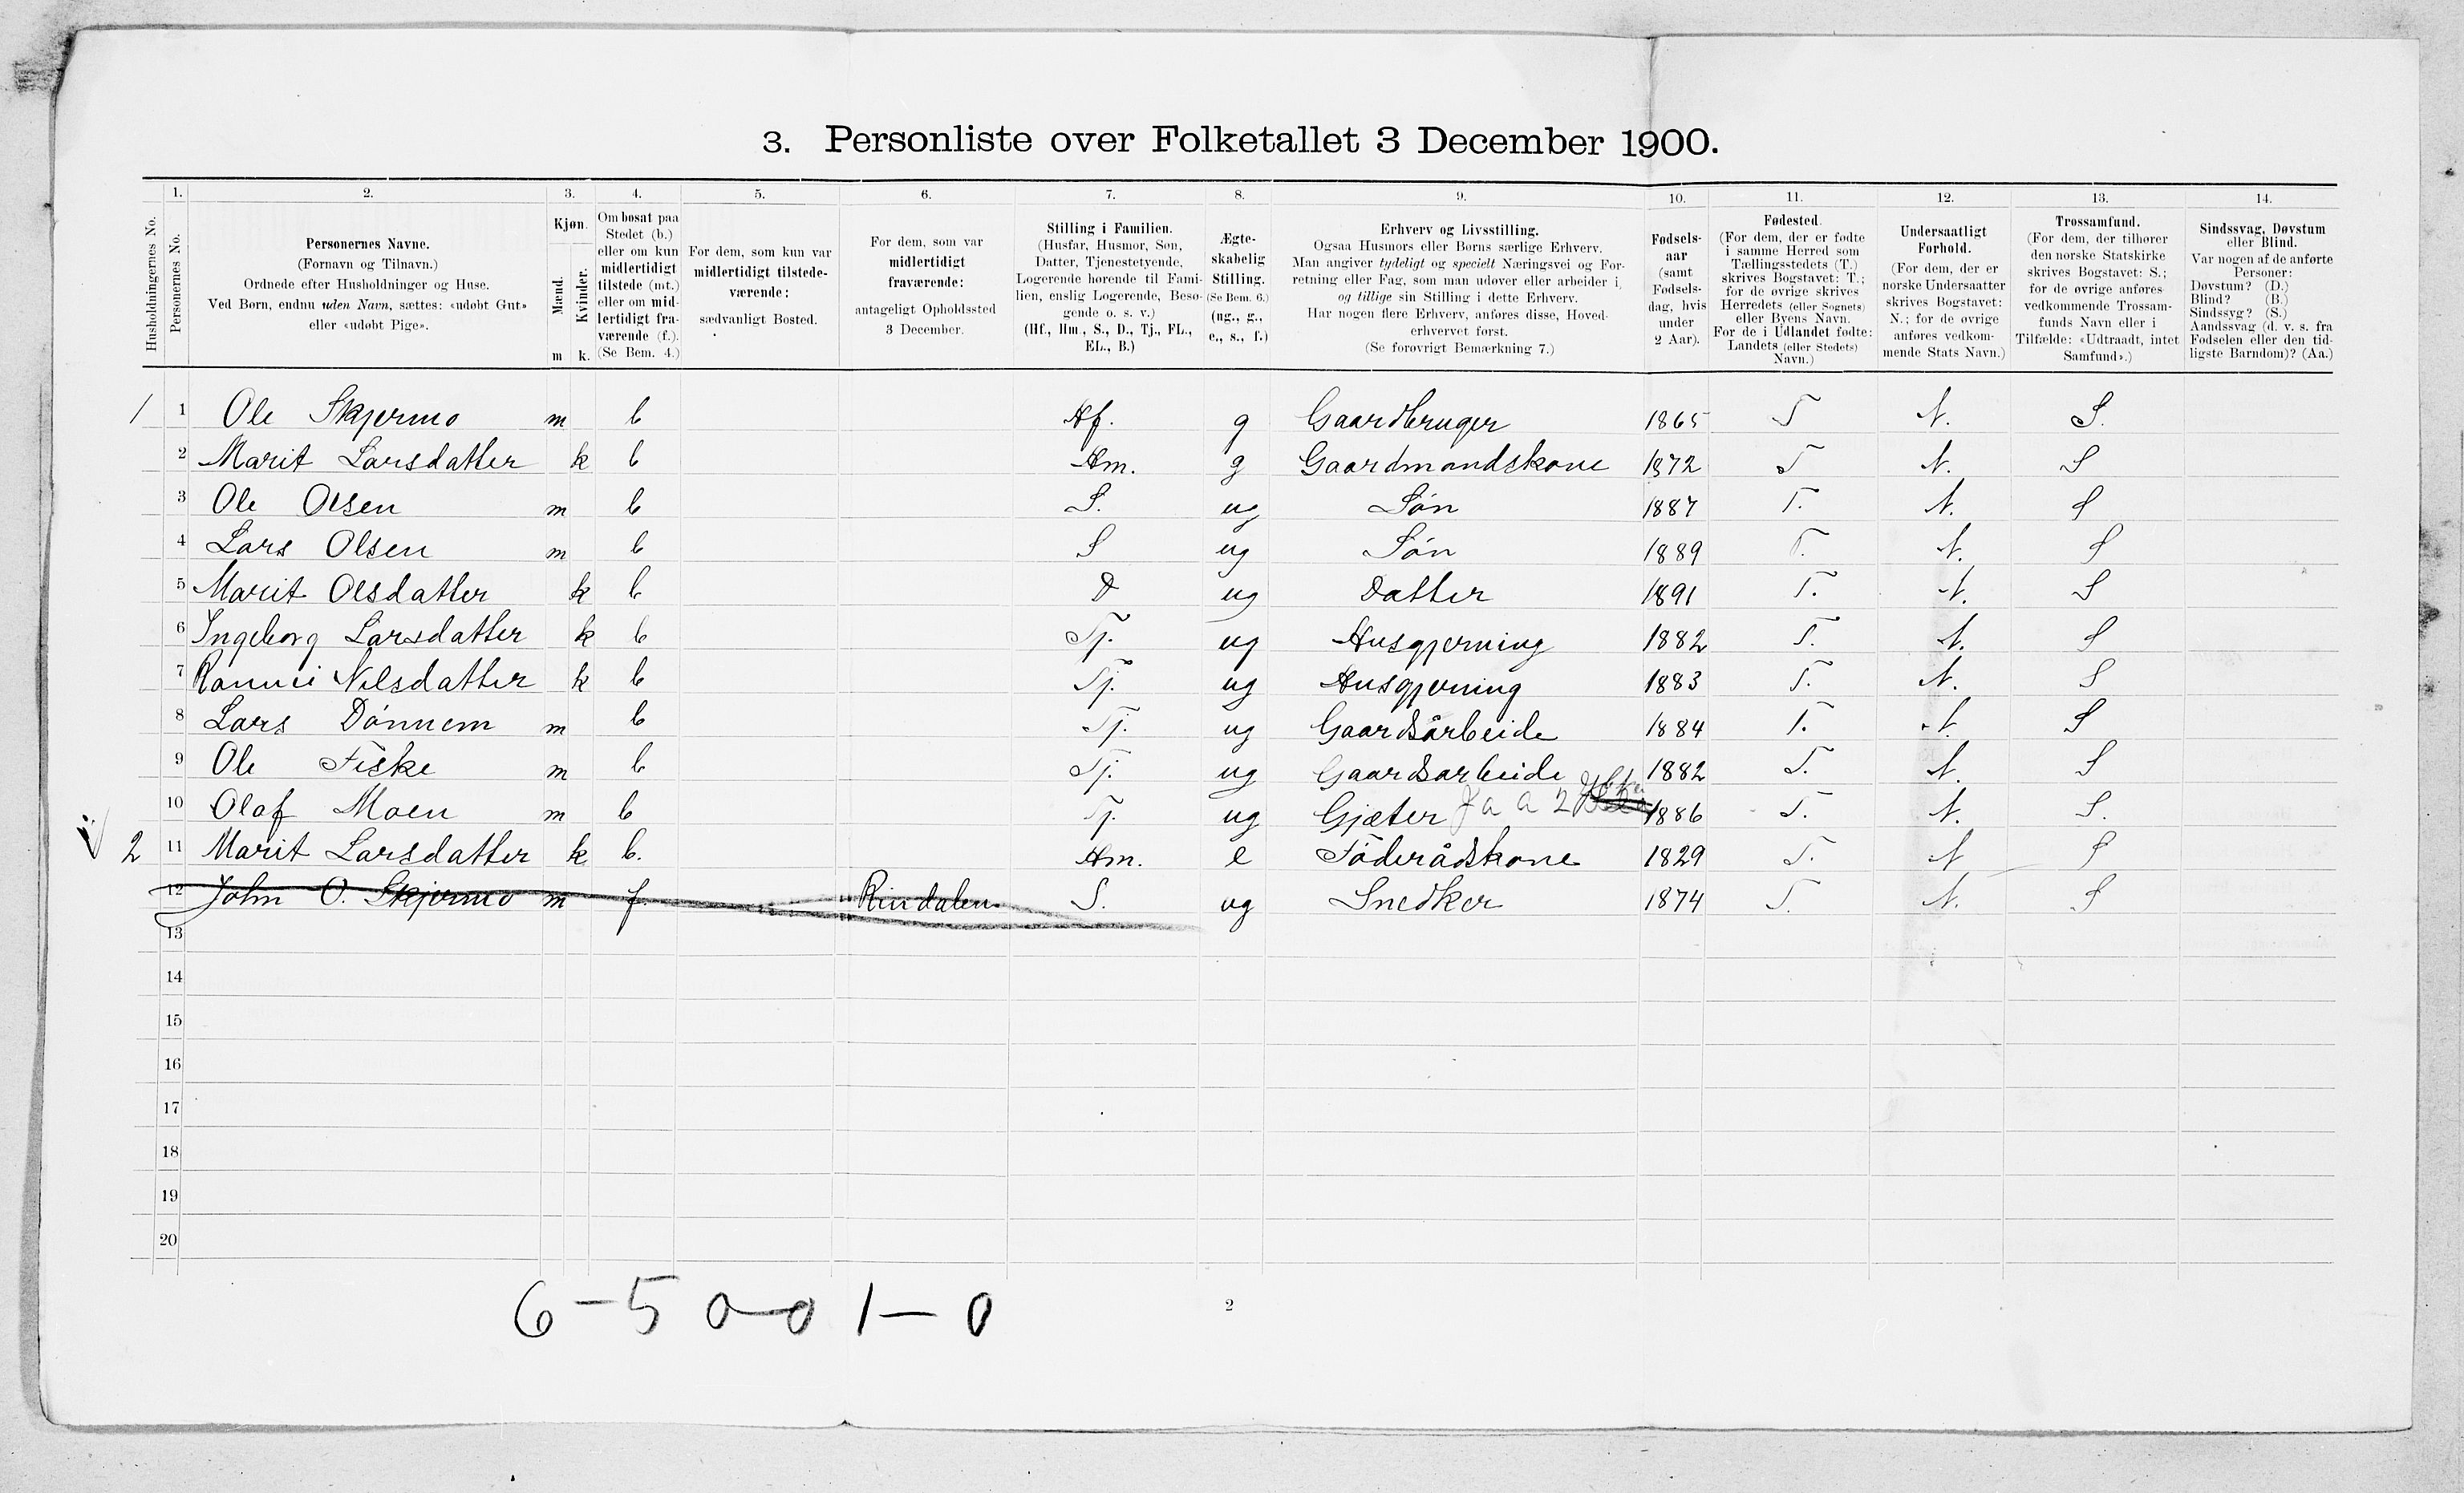 3. Personliste over Folketallet 3 December 1900.
1. 2. 3. 4. 5. 6. 7. 8. 9. 10. 11. 12. 13. 14.
Husholdningernes No.
Personernes No.
Personernes Navne.
(Fornavn og Tilnavn.)
Ordnede efter Husholdninger og Huse.
Ved Børn, endnu uden Navn, sættes: «udøbt Gut»
eller «udøbt Pige».
Kjøn.
Mænd.
Kvinder.
m k.
Om bosat paa
Stedet (b.)
eller om kun
midlertidigt
tilstede (mt.)
eller om mid-
lertidigt fra-
værende (f.).
(Se Bem. 4.)
For dem, som kun var
midlertidigt tilstede-
værende:
sædvanligt Bosted.
For dem, som var
midlertidigt
fraværende:
antageligt Opholdssted
3 December.
Stilling i Familien.
(Husfar, Husmor, Søn,
Datter, Tjenestetyende,
Logerende hørende til Fami-
lien, enslig Logerende, Besø-
gende o. s. v.)
(Hf., Hm., S., D., Tj., FL.,
EL., B.)
Ægte-
skabelig
Stilling.
(Se Bem. 6.)
(ug., g.,
e., s., f.)
Erhverv og Livsstilling.
Ogsaa Husmors eller Børns særlige Erhverv.
Man angiver tydeligt og specielt Næringsvei og For-
retning eller Fag, som man udøver eller arbeider i,
og tillige sin Stilling i dette Erhverv.
Har nogen flere Erhverv, anføres disse, Hoved-
erhvervet først.
(Se forøvrigt Bemærkning 7.)
Fødsels-
aar
(samt
Fødsels-
dag, hvis
under
2 Aar).
Fødested.
(For dem, der er fødte
i samme Herred som
Tællingsstedets (T.)
skrives Bogstavet: T.;
for de øvrige skrives
Herredets (eller Sognets)
eller Byens Navn.
For de i Udlandet fødte:
Landets (eller Stedets)
Navn.)
Undersaatligt
Forhold.
(For dem, der er
norske Undersaatter
skrives Bogstavet:
N.; for de øvrige
anføres vedkom-
mende Stats Navn.)
Trossamfund.
(For dem, der tilhører
den norske Statskirke
skrives Bogstavet: S.;
for de øvrige anføres
vedkommende Trossam-
funds Navn eller i
Tilfælde: «Udtraadt, intet
Samfund».)
Sindssvag, Døvstum
eller Blind.
Var nogen af de anførte
Personer:
Døvstum? (D.)
Blind? (B.)
Sindssyg? (S.)
Aandssvag (d. v. s. fra
Fødselen eller den tid-
ligste Barndom)? (Aa.)
1 1 Ole Skjermo m b Hf. g Gaardbruger 1865 T N. S.
2 Marit Larsdatter k b Hm. g Gaardmandskone 1872 T N. S
3 Ole Olsen m b S. ug Søn 1887 T. N. S
4 Lars Olsen m b S ug Søn 1889 T. N. S
5 Marit Olsdatter k b D ug Datter 1891 T. N. S
6 Ingeborg Larsdatter k b Tj. ug Husgjerning 1882 T. N. S
7 Rannei Nilsdatter k b Tj. ug Husgjerning 1883 T. N. S
8 Lars Dønnem m b Tj. ug Gaardsårbeide 1884 T. N. S
9 Ole Fiske m b Tj. ug Gaardsarbeide 1882 T. N. S
10 Olaf Moen m b Tj. ug Gjæter 1886 T. N. S.
2 11 Marit Larsdatter k b. Hm. e Føderådskone 1829 T. N S
12 John O. Skjermo m f. Rindalen. S. ug Snedker 1874 T. N. S
13
14
15
16
17
18
19
20
6 - 5 0 - 0 1 - 0
2